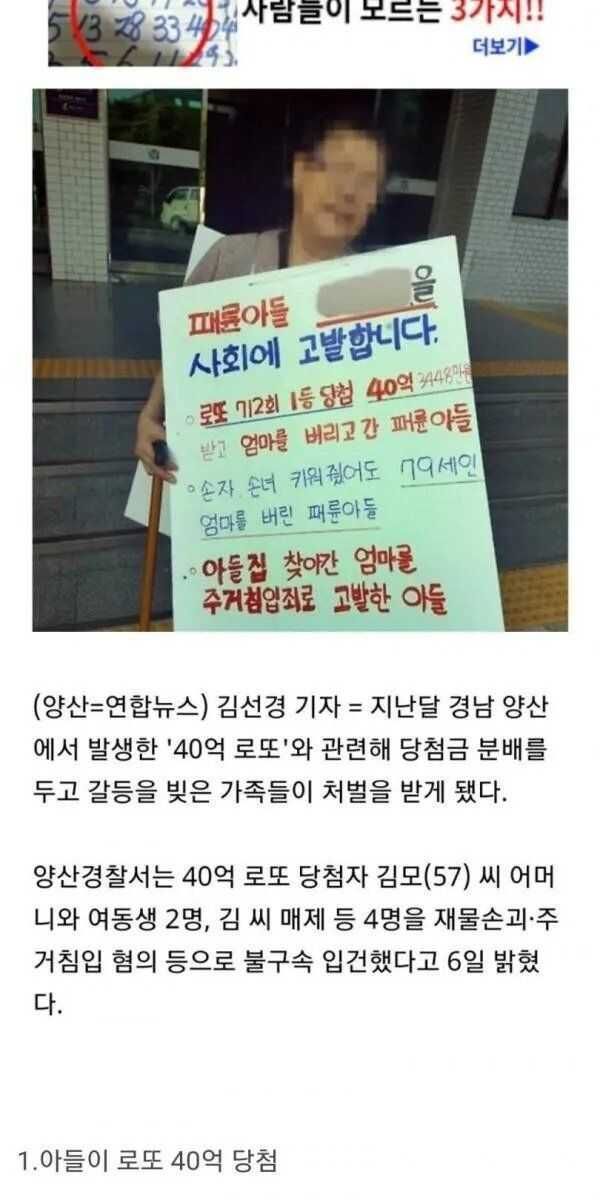 사람들이 모르는 3가지!!
5 13 28 33 40
더보기▶
패륜아들 을
사회에 고발합니다.
로또 712회 1등 당첨 40억 3448만원
받고 엄마를 버리고 간 패륜아들
손자 손녀 키워줬어도 79세인
엄마를 버린 패륜아들
아들집 찾아간 엄마를
주거침입죄로 고발한 아들
(양산=연합뉴스) 김선경 기자 = 지난달 경남 양산
에서 발생한 '40억 로또'와 관련해 당첨금 분배를
두고 갈등을 빚은 가족들이 처벌을 받게 됐다.
양산경찰서는 40억 로또 당첨자 김모(57) 씨 어머
니와 여동생 2명, 김 씨 매제 등 4명을 재물손괴·주
거침입 혐의 등으로 불구속 입건했다고 6일 밝혔
다.
1.아들이 로또 40억 당첨